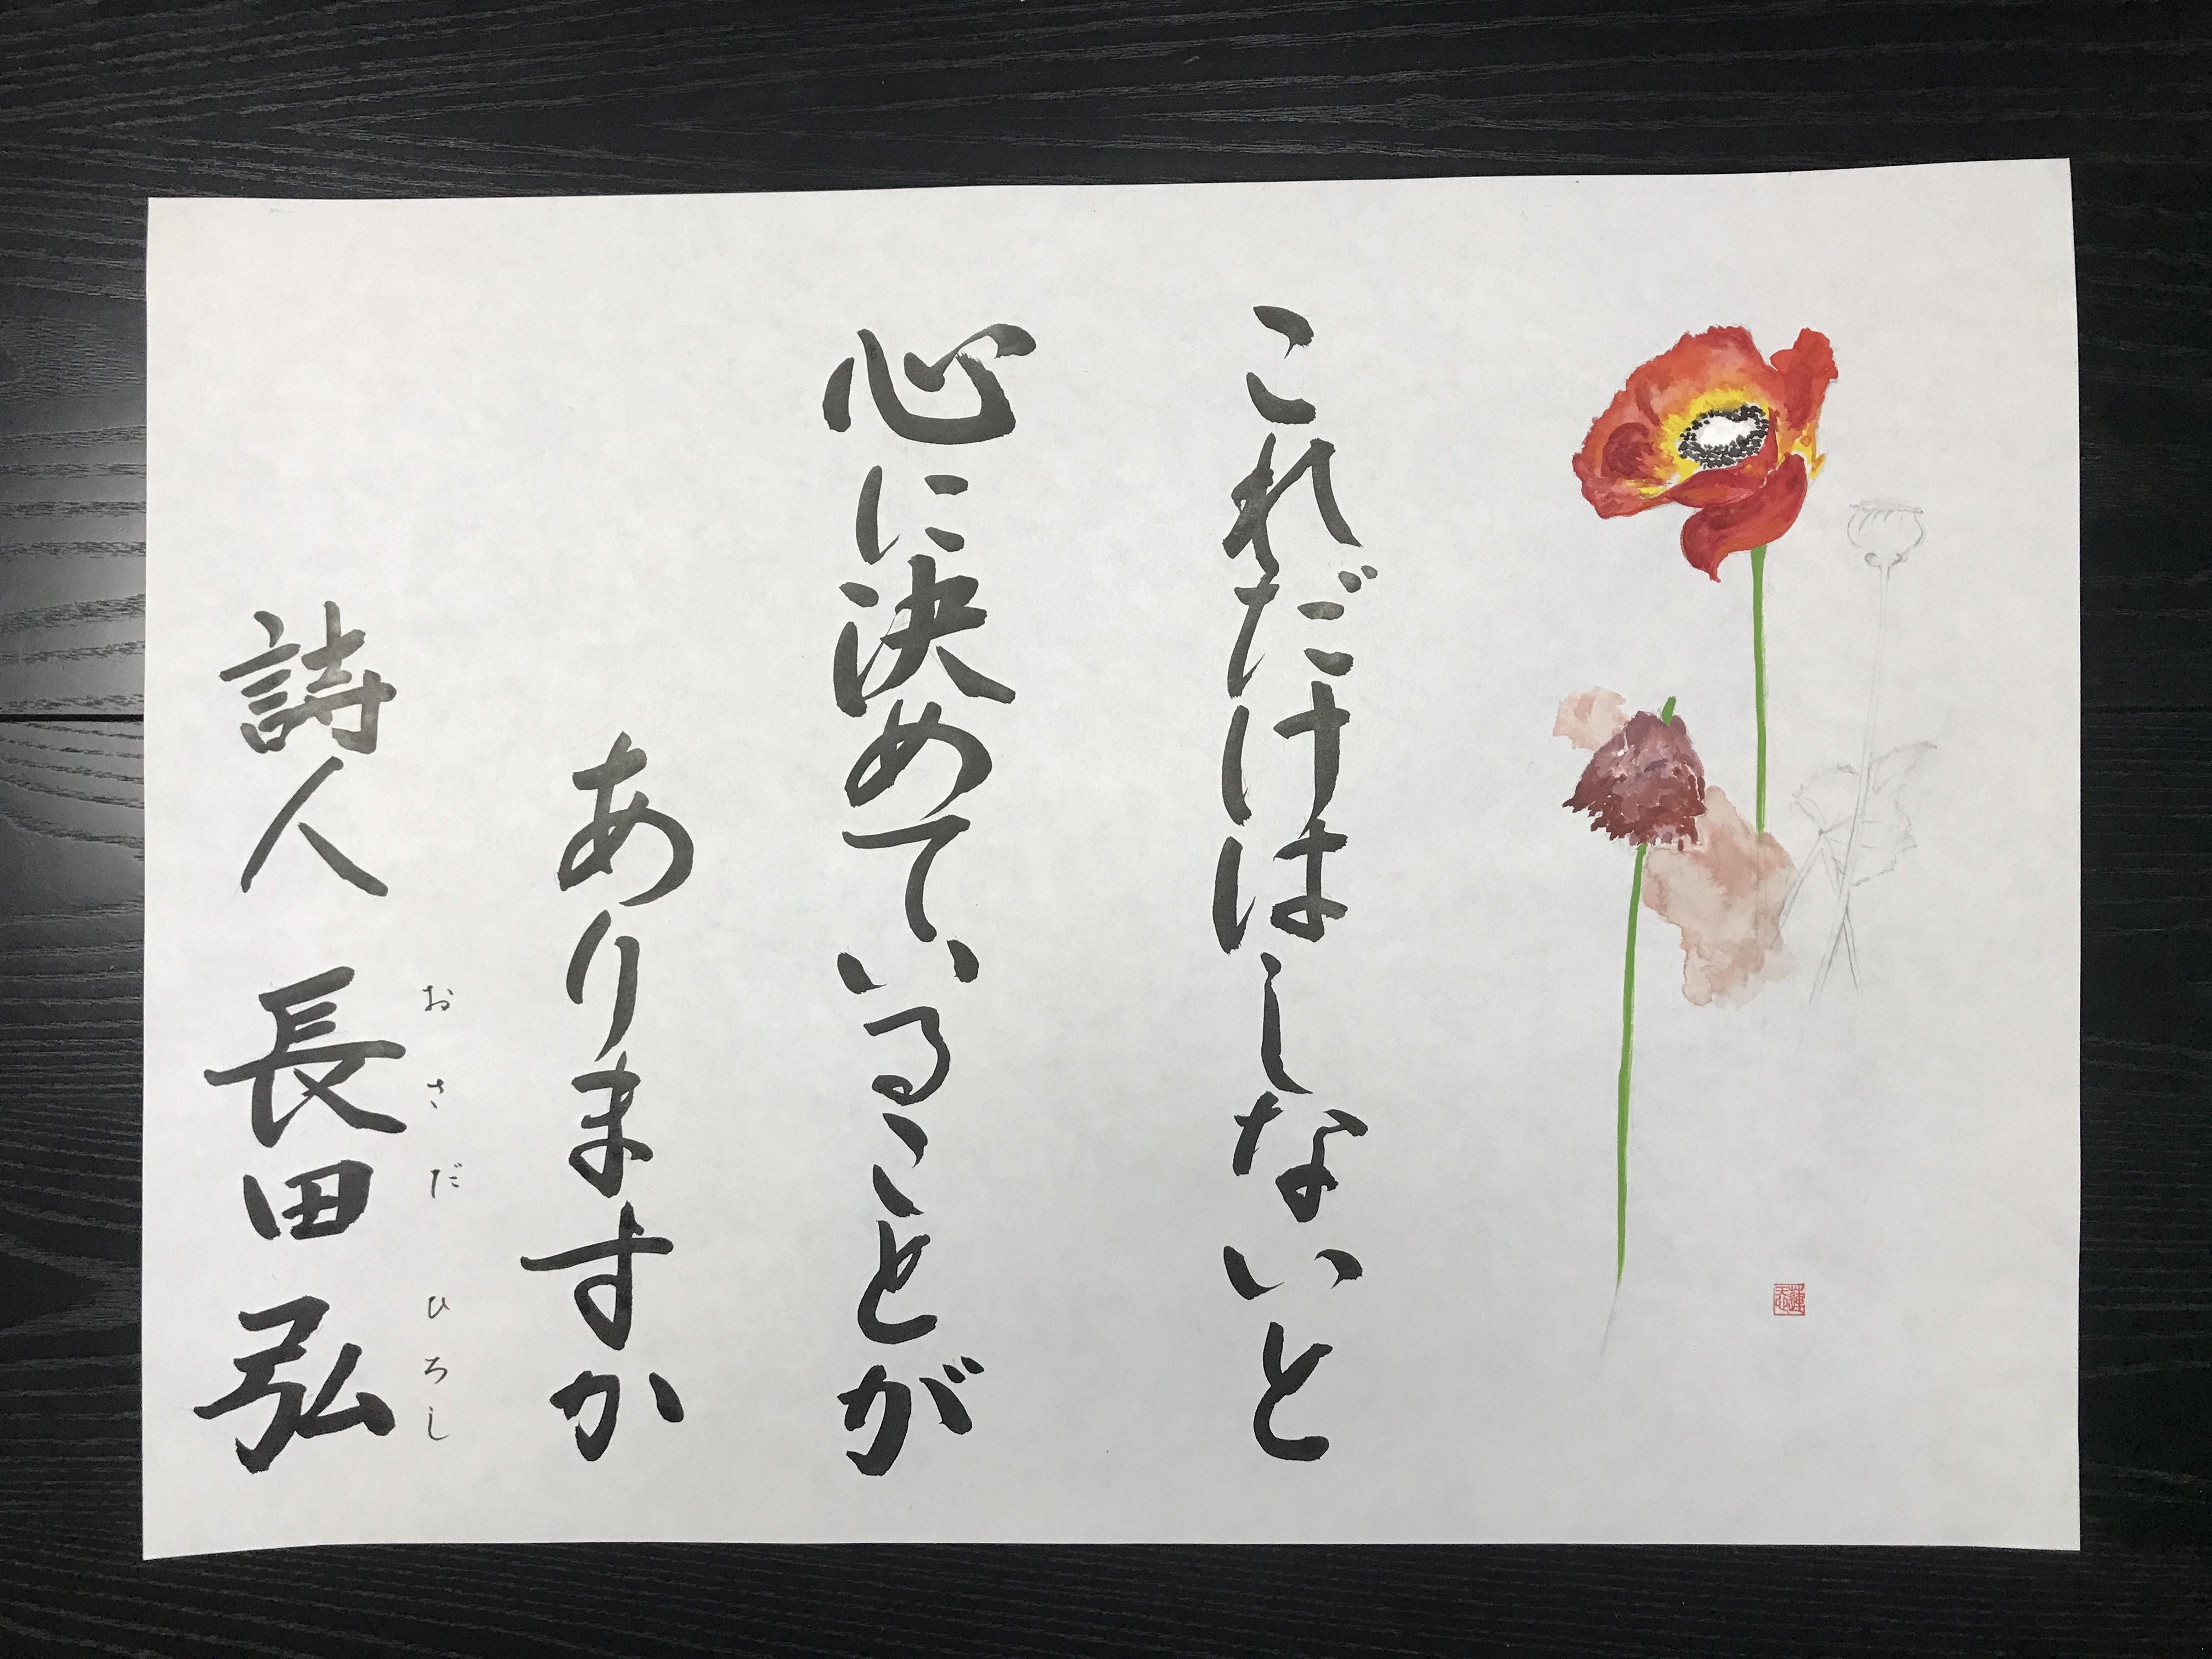 これだけはしないと
心に決めていることが
ありますか
おさだ ひろし
詩人 長田 弘